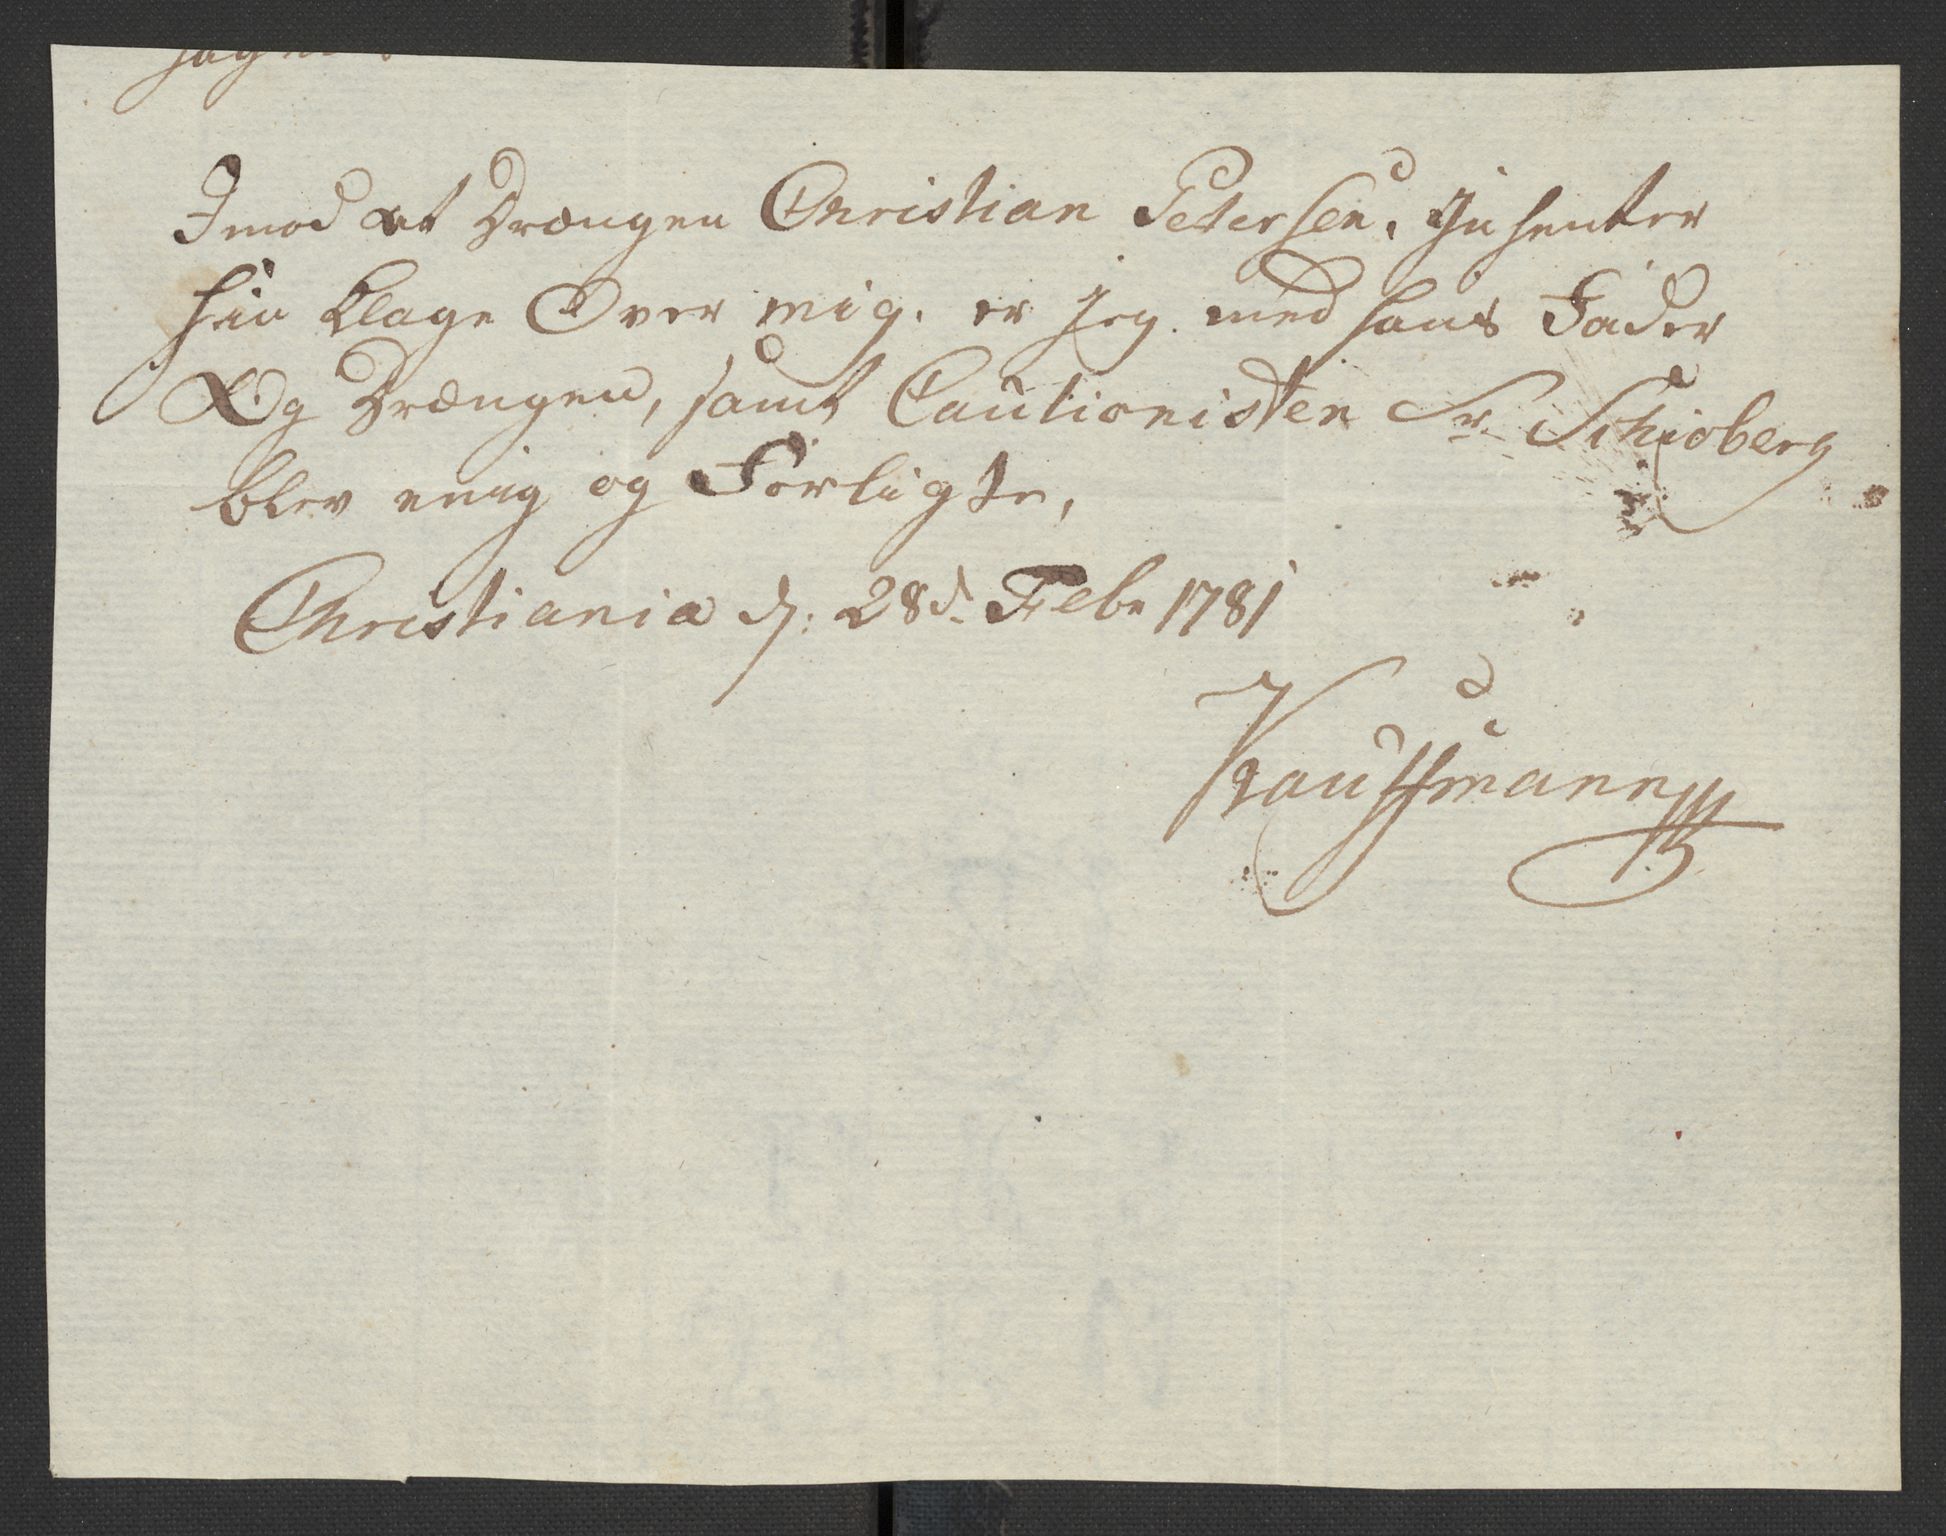 Imod at Drængen Christian Petersen, Jnhenter
sin Klage Over mig. er jeg med hans Fader
Og Drængen, samt Cautionisten Sr. Schioberg
blev enig og Forligte,
Christiania d: 28d. Febr 1781
Kauffmann